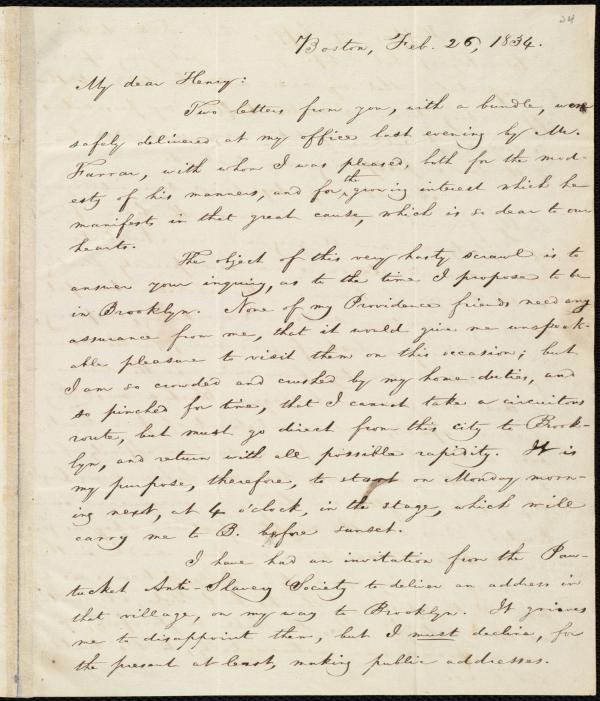 24
Boston, Feb. 26, 1834.
My dear Henry:
Two letters from you, with a bundle, were
safely delivered at my office last evening by Mr.
Farrar, with whom I was pleased, both for the mod-
esty of his manners, and for the growing interest which he
manifests in that great cause, which is so dear to our
hearts.
The object of this very hasty scrawl is to
answer your inquiry, as to the time I propose to be
in Brooklyn. None of my Providence friends need any
assurance from me, that it would give me unspeak-
able pleasure to visit them on this occasion; but
I am so crowded and crushed by my home-duties, and
so pinched for time, that I cannot take a circuitous
route, but must go direct from this city to Brook-
lyn, and return with all possible rapidity. It is
my purpose, therefore, to start on Monday morn-
ing next, at 4 o'clock, in the stage, which will
carry me to B. before sunset.
I have had an invitation from the Paw-
tucket Anti-Slavery Society to deliver an address in
that village, on my way to Brooklyn. It grieves
me to disappoint them, but I must decline, for
the present at least, making public addresses.